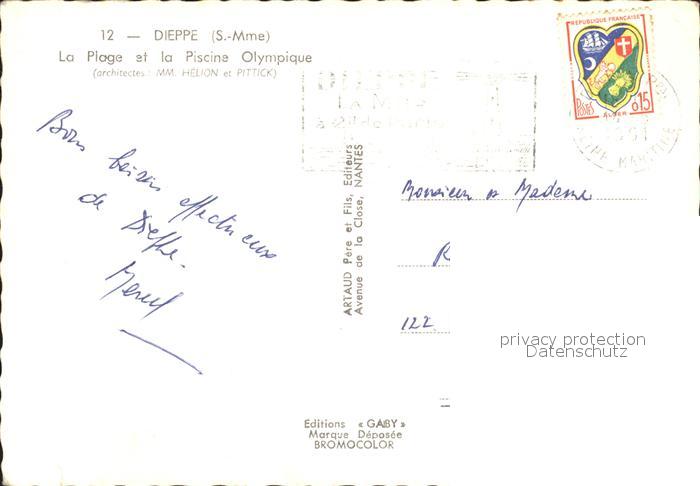 12 — DIEPPE (S.-Mme)
La Plage et la Piscine Olympique
(architectes : MM. HÉLION et PITTICK)
Bons baisers affectueux
de Dieppe.
ARTAUD Père et Fils, Editeurs
Avenue de la Close, NANTES
REPUBLIQUE FRANÇAISE
POSTES
0.15
ALGER
SEINE MARITIME
LA MER
Monsieur & Madame
R
122
privacy protection
Datenschutz
Editions « GABY »
Marque Déposée
BROMOCOLOR